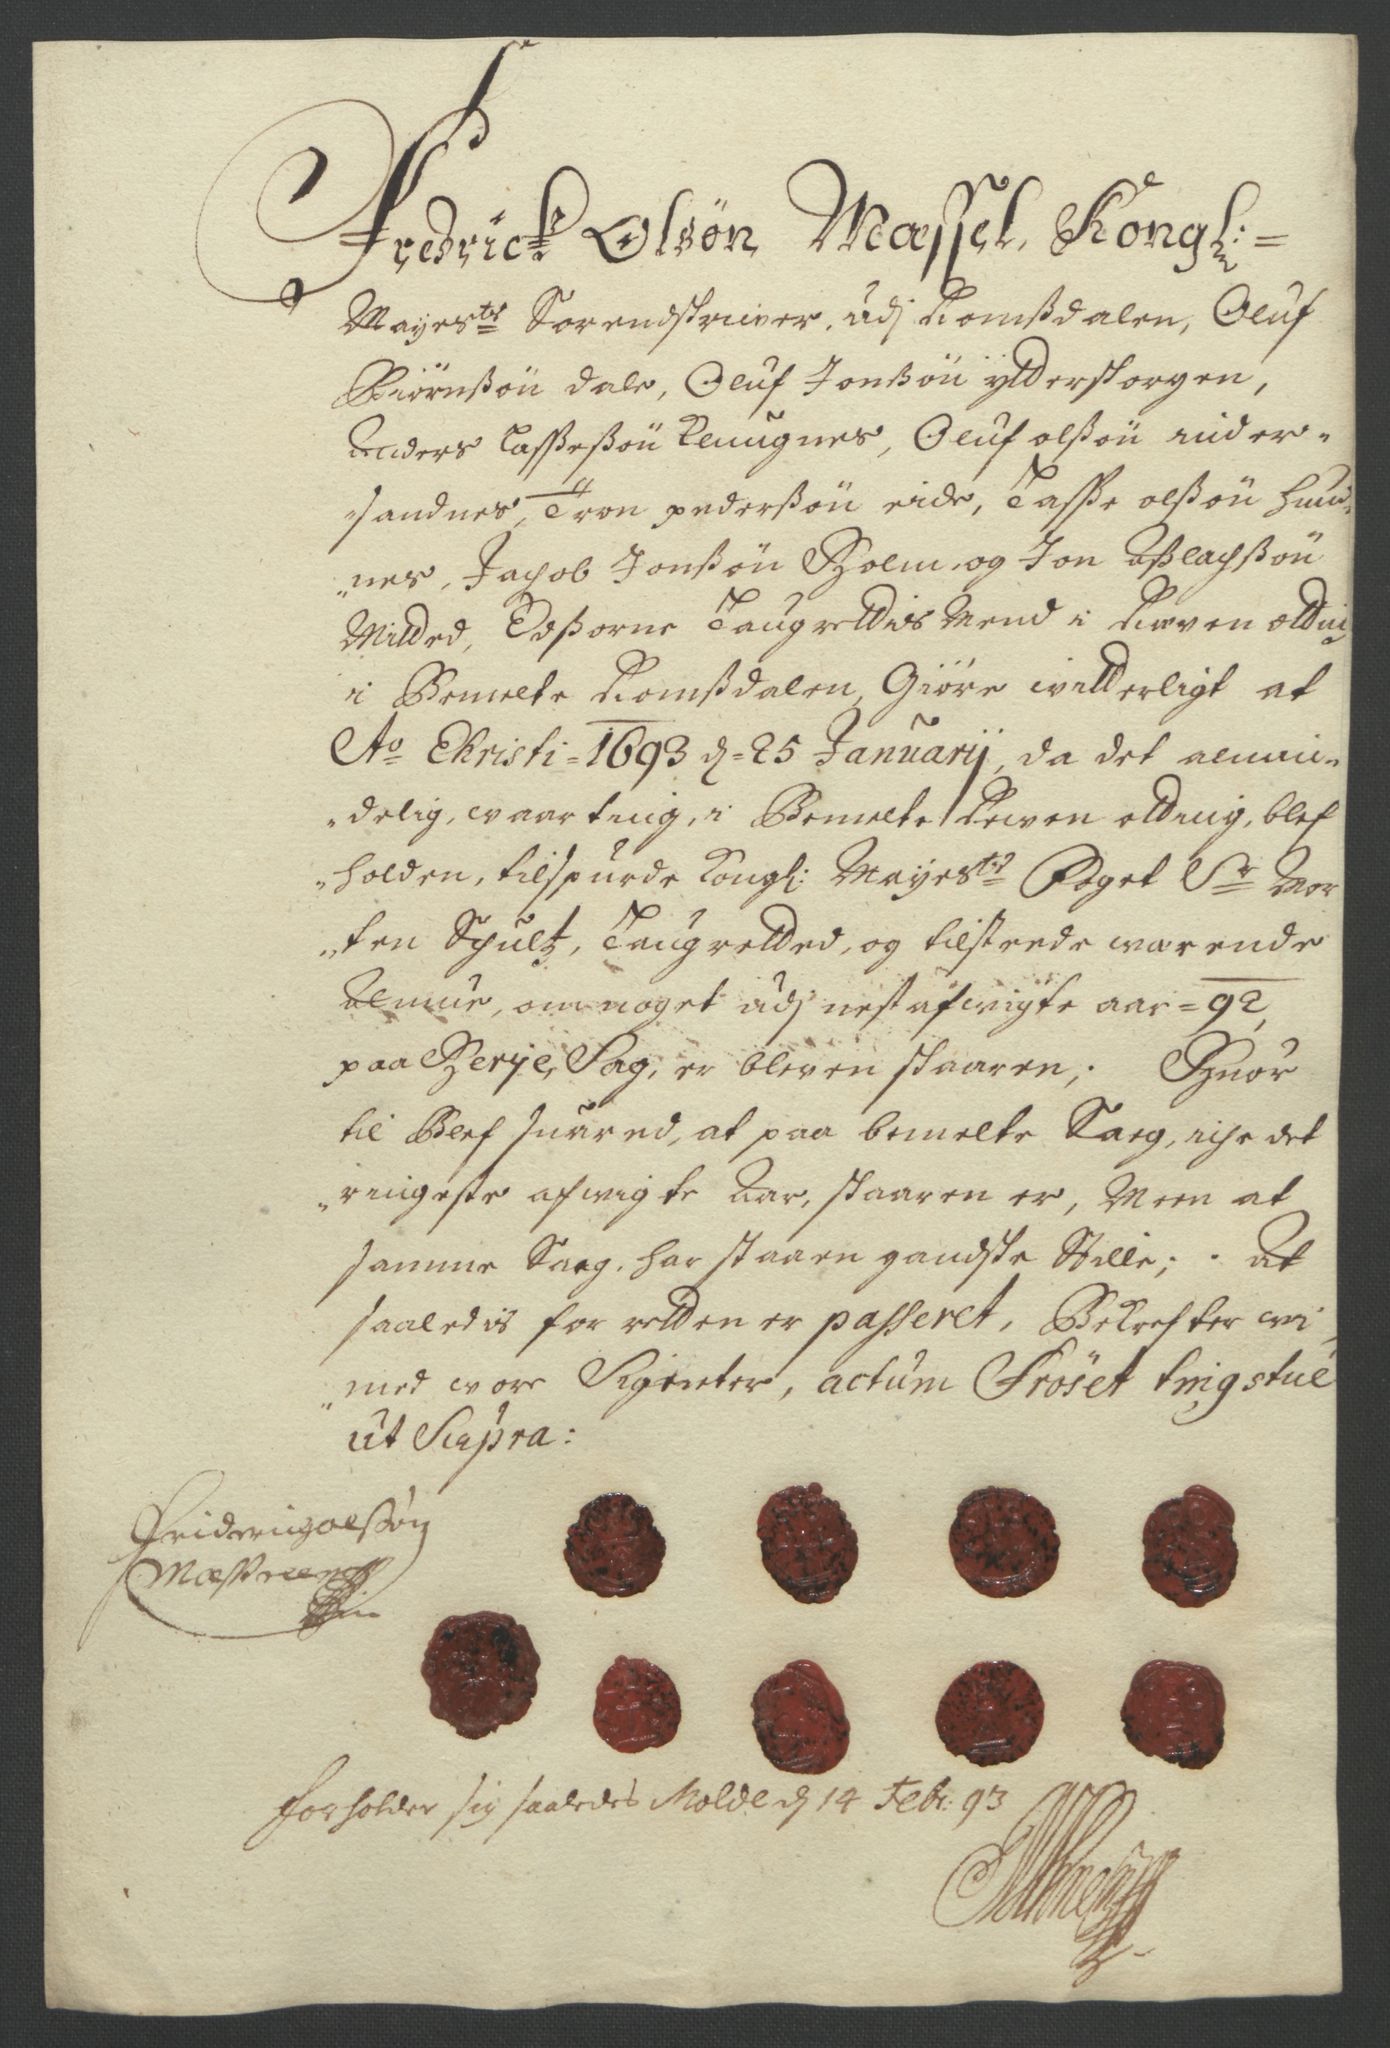 Fredrick Olsön Mæssel, Kongl: =
Mayes.tz Sorendskriver, udj Romsdalen, Oluf
Biörnsön dale, Oluf Jonsön ylderskorgen,
Anders Lasßesön Langnes, Oluf olsön inder-
sandnes, Tron pedersön eide, Lasße olsön hund-
nes, Jachob Jonsön Holm, og Jon Aslachsön
Milded, Edsorne Laugrettis Mend i Røven otting
i Bemelte Romsdalen, Giöre witterligt at
Ao Christi = 1693 d = 25 Januarij, da det almin-
delig, waarting, i Bemelte Røven otting, blef
holden, tilspurde Kongl: Mayes.tz Foget Sr Mor
ten Schultz, Laugretted, og tilstæde wærende
Almue, om noget udj nest afwigte aar = 92,
paa Herje, Sag, er bleven skaaren; Huor
til Blef suared, at paa bemelte Saeg, iche det
ringeste afwigte Aar, skaaren er, Meen at
samme Saeg, har staaen gandske Stille; At
saaledis for retten er passeret, Bekrefter wi
med wore Signeter, actum Fröset tingstue
ut Supra:
Friderich olssøn
Mæssell
forholder sig saaledes Molde d 14 Febr: 93